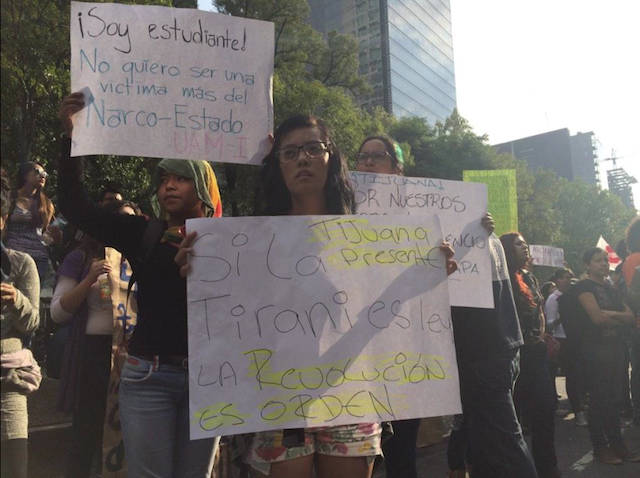 ¡Soy estudiante!
No quiero ser una
victima más del
Narco-Estado
UAM-I
Tijuana
presente
Si La
Tirani es ley
LA Revolución
es ORDEN
OR NUESTROS
ENCIO
APA